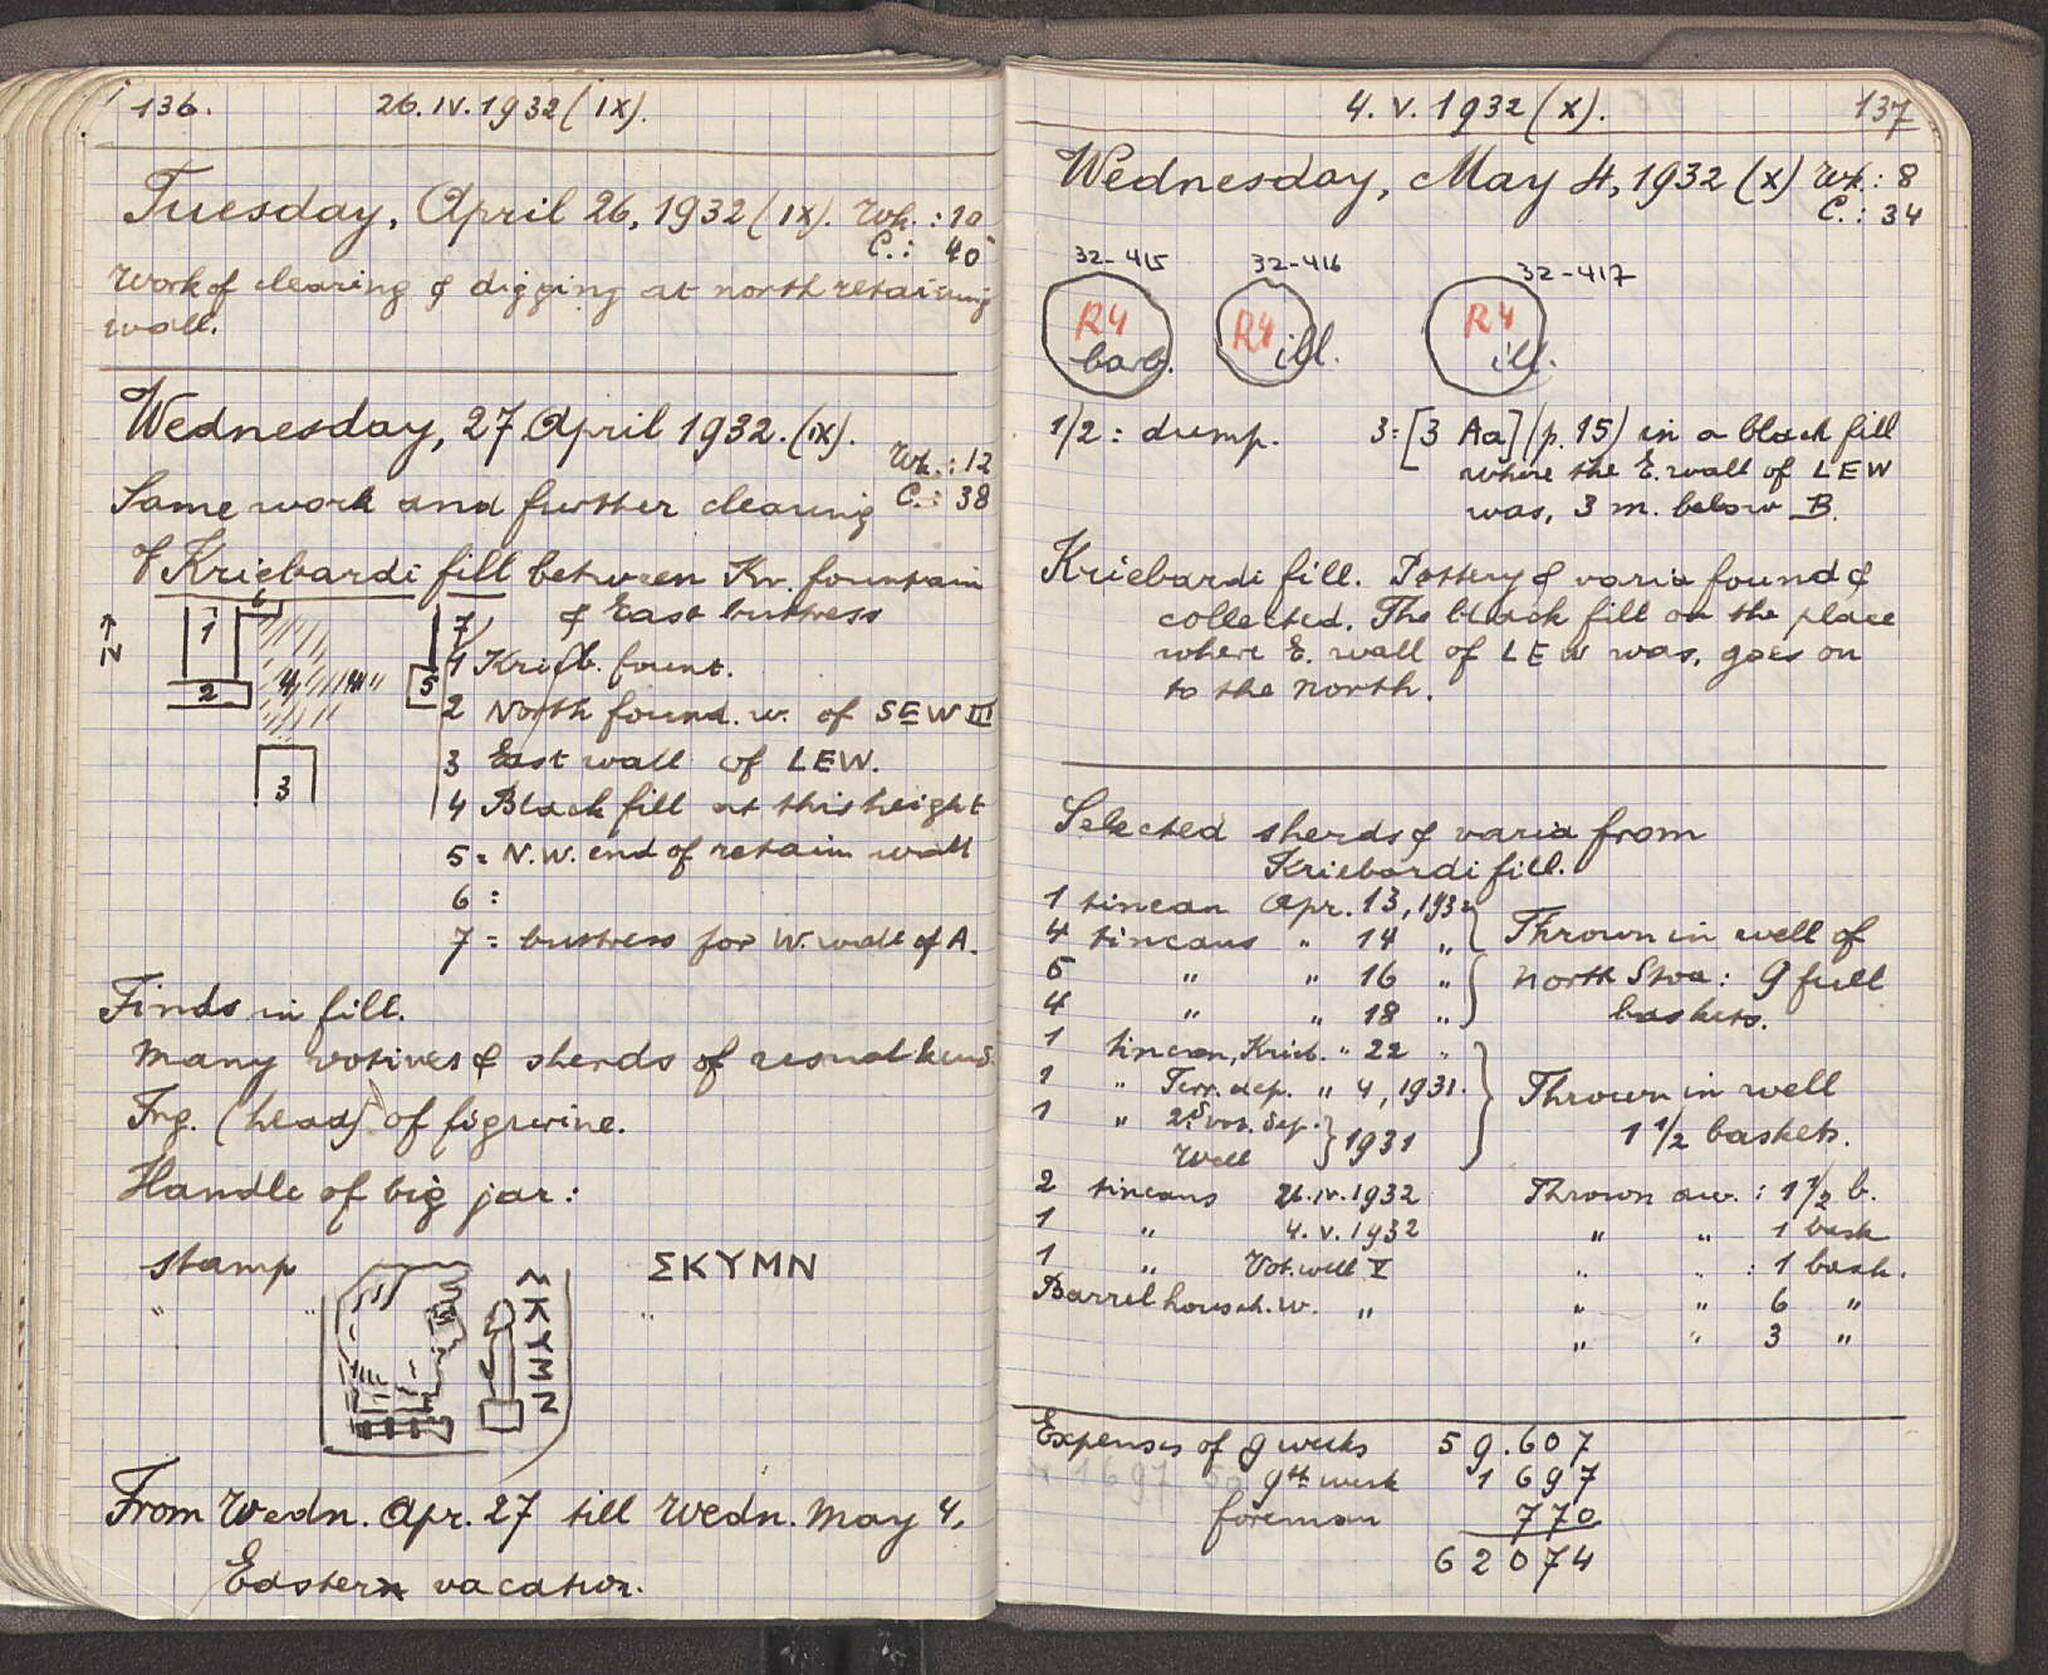 136.
26.IV.1932 (IX).
Tuesday, April 26, 1932 (IX). Wk.: 10
C.: 40
Work of clearing & digging at north retaining
wall.
Wednesday, 27 April 1932. (IX).
Wk.: 12
Same work and further clearing C.: 38
of Kriebardi fill between Kr. fountain
& East buttress
N
1
6
2
4
4
5
3
7
1 Krieb. fount.
2 North found. w. of SEW III
3 East wall of LEW.
4 Black fill at this height
5 = N.W. end of retain wall
6 :
7 = buttress for W. wall of A.
Finds in fill.
Many votives & sherds of usual kind.
Frg. (head) of figurine.
Handle of big jar:
stamp ΣΚΥΜΝ
" " "
ΣΚΥΜΝ
From Wedn. Apr. 27 till Wedn. May 4,
Easter vacation.
4. V. 1932 (X).
137
Wednesday, May 4, 1932 (X) Wk.: 8
C.: 34
32-415 32-416 32-417
R4 R4 R4
barb. ill. ill.
1/2 : dump. 3 = [3 Aa] (p. 15) in a black fill
where the E. wall of LEW
was, 3 m. below B.
Kriebardi fill. Pottery & varia found &
collected. The black fill on the place
where E. wall of LEW was, goes on
to the north.
Selected sherds & varia from
Kriebardi fill.
1 tincan Apr. 13, 1932
4 tincans " 14 " Thrown in well of
5 " " 16 " North Stoa: 9 full
4 " " 18 " baskets.
1 tincan, Krieb. " 22 "
1 " Terr. dep. " 4, 1931. Thrown in well
1 " 2d vot. dep. 1 1/2 baskets.
Well 1931
2 tincans 21.IV.1932 Thrown aw. : 1 1/2 b.
1 " 4. V. 1932 " " 1 bask
1 " Vot. well V " " : 1 bask.
Barrel househ. w. " " " 6 "
" " 3 "
Expenses of 9 weeks 59.607
9th week 1697
foreman 770
62074